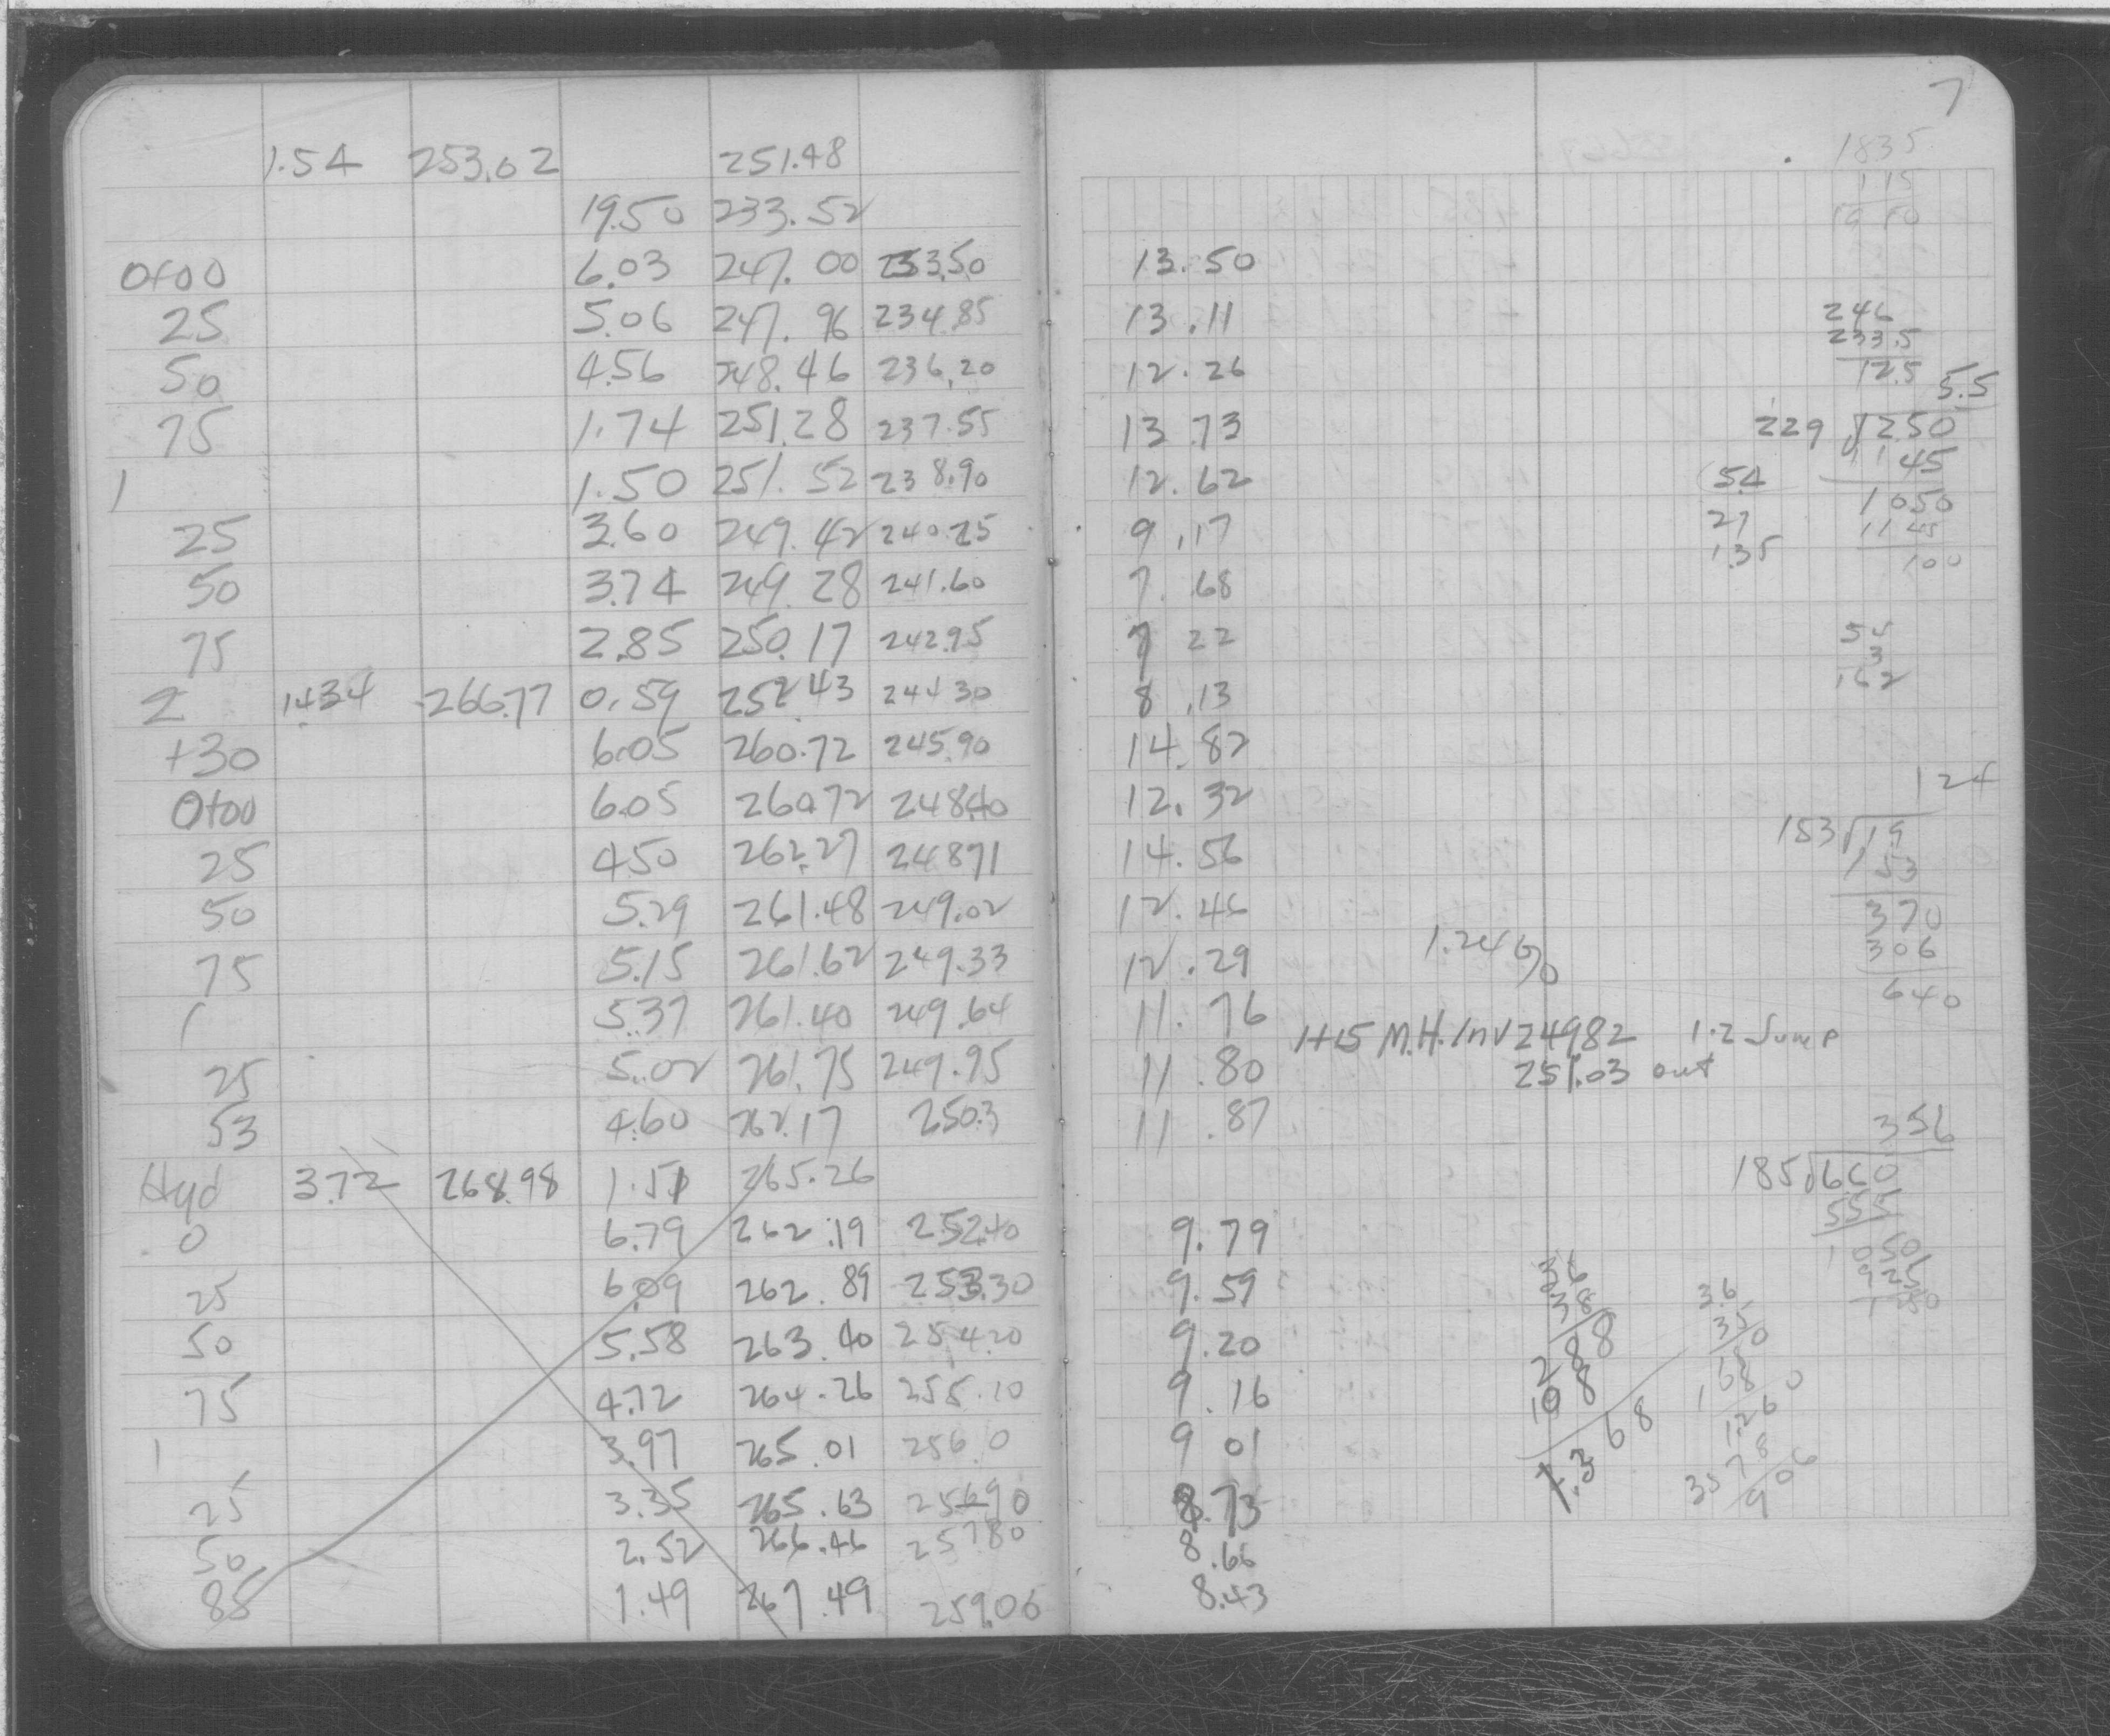 7
1.54 253.02 251.48
19.50 233.52
0+00 6.03 247.00 233.50 13.50
25 5.06 247.96 234.85 13.11
50 4.56 248.46 236.20 12.26
75 1.74 251.28 237.55 13.73
1 1.50 251.52 238.90 12.62
25 3.60 249.42 240.25 9.17
50 3.74 249.28 241.60 7.68
75 2.85 250.17 242.95 7 22
2 14.34 266.77 0.59 252.43 244 30 8.13
+30 6.05 260.72 245.90 14.82
0+00 6.05 260.72 248.40 12.32
25 4.50 262.27 248.71 14.56
50 5.29 261.48 249.02 12.46
75 5.15 261.62 249.33 12.29
1 5.37 261.40 249.64 11.76
25 5.02 261.75 249.95 11.80
53 4.60 262.17 250.3 11.87
Hyd 3.72 268.98 1.51 265.26
0 6.79 262.19 252.40 9.79
25 6.09 262.89 253.30 9.59
50 5.58 263.40 254.20 9.20
75 4.72 264.26 255.10 9.16
1 3.97 265.01 256.0 9 01
25 3.35 265.63 256.90 8.73
50 2.52 266.46 257.80 8.66
85 1.49 267.49 259.06 8.43
1.24%
1+15 M.H. Inv 249.82 1.2 Jump
251.03 out
1835
115
246
233.5
12.5
5.5
229 1250
1145
1050
1145
100
54
27
1.35
54
3
162
124
153 19
153
370
306
640
356
185 660
555
1050
925
1250
288
108
1.368
3.6
35
180
108
1.260